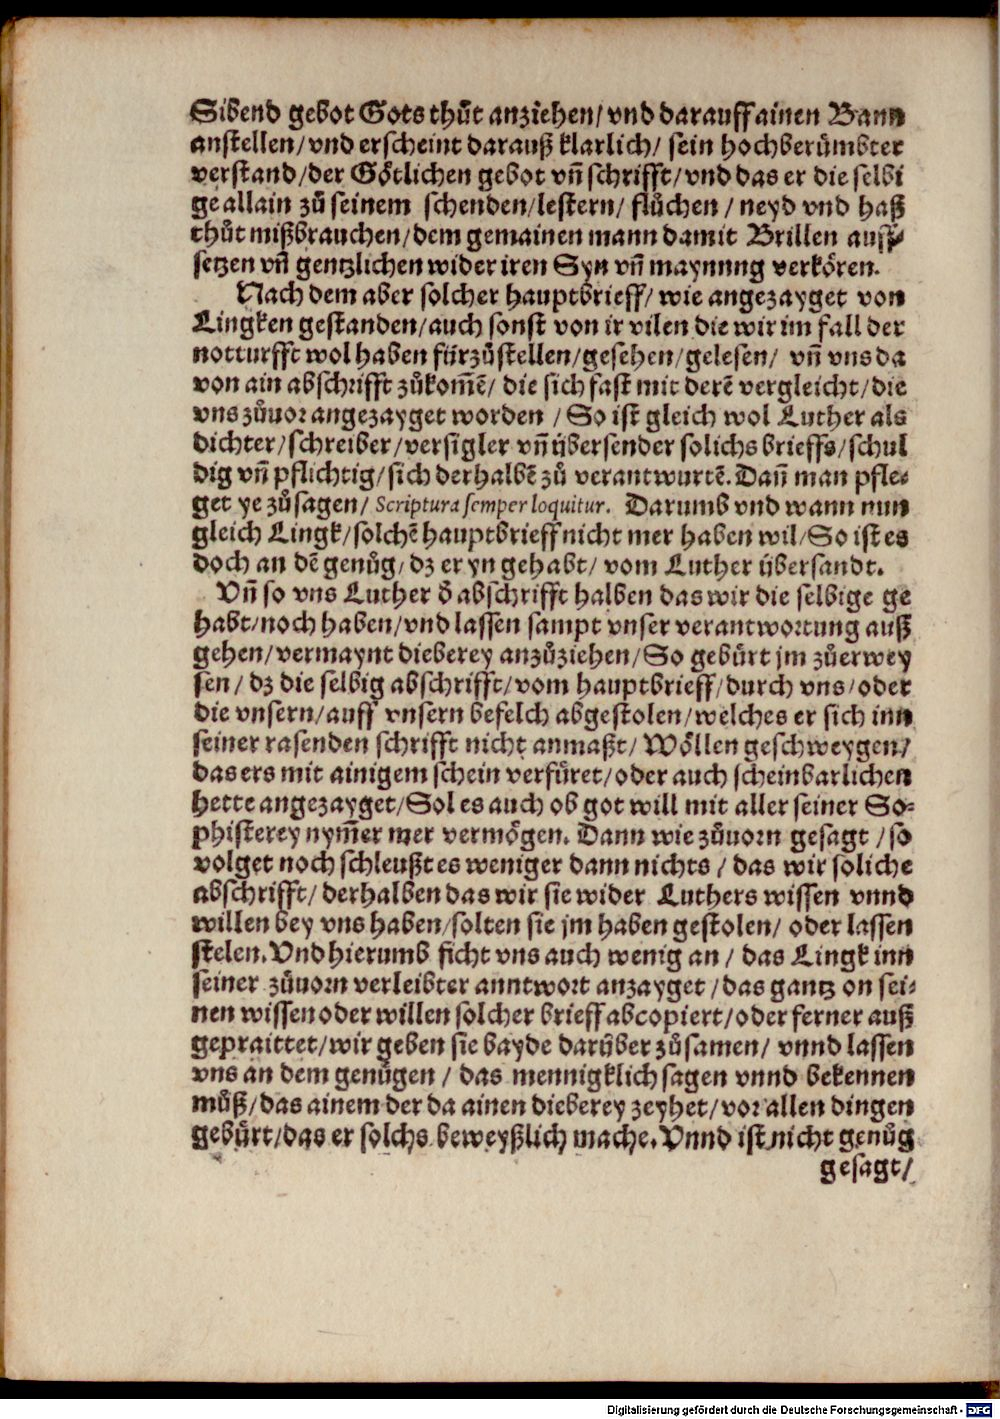 Sibend gebot Gots thůt anziehen/ vnd darauff ainen Bann
anstellen/ vnd erscheint darauß klarlich/ sein hochberůmbter
verstand/ der Götlichen gebot vñ schrifft/ vnd das er die selbi
ge allain zů seinem schenden/ lestern/ flůchen / neyd vnd haß
thůt mißbrauchen/ dem gemainen mann damit Brillen auff⸗
setzen vñ gentzlichen wider iren Syn vñ maynung verkören.
Nach dem aber solcher hauptbrieff/ wie angezayget von
Lingken gestanden/ auch sonst von ir vilen die wir im fall der
notturfft wol haben fürzůstellen/ gesehen/ gelesen/ vñ vns da
von ain abschrifft zůkom̃ẽ/ die sich fast mit derẽ vergleicht/ die
vns zůuor angezayget worden / So ist gleich wol Luther als
dichter/ schreiber/ versigler vñ übersender solichs brieffs/ schul
dig vñ pflichtig/ sich derhalbẽ zů verantwurtẽ. Dañ man pfle⸗
get ye zů sagen/ Scriptura semper loquitur. Darumb vnd wann nun
gleich Lingk/ solchẽ hauptbrieff nicht mer haben wil/ So ist es
doch an dẽ genůg/ dz er yn gehabt/ vom Luther übersandt.
Vñ so vns Luther d̓ abschrifft halben das wir die selbige ge
habt/ noch haben/ vnd lassen sampt vnser verantwortung auß
gehen/ vermaynt dieberey anzůziehen/ So gebürt jm zůerwey
sen / dz die selbig abschrifft/ vom hauptbrieff/ durch vns/ oder
die vnsern/ auff vnsern befelch abgestolen/ welches er sich inn
seiner rasenden schrifft nicht anmaßt/ Wöllen geschweygen/
das ers mit ainigem schein verfüret/ oder auch scheinbarlichen
hette angezayget/ Sol es auch ob got will mit aller seiner So⸗
phisterey nym̃er mer vermögen. Dann wie zůuorn gesagt / so
volget noch schleußt es weniger dann nichts / das wir soliche
abschrifft/ derhalben das wir sie wider Luthers wissen vnnd
willen bey vns haben/ solten sie jm haben gestolen/ oder lassen
stelen. Vnd hierumb ficht vns auch wenig an / das Lingk inn
seiner zůuorn verleibter anntwort anzayget / das gantz on sei⸗
nen wissen oder willen solcher brieff abcopiert/ oder ferner auß
gepraittet/ wir geben sie bayde darüber zůsamen/ vnnd lassen
vns an dem genügen / das mennigklich sagen vnnd bekennen
můß/ das ainem der da ainen dieberey zeyhet/ vor allen dingen
gebürt/ das er solchs beweyßlich mache. Vnnd ist nicht genůg
gesagt/
Digitalisierung gefördert durch die Deutsche Forschungsgemeinschaft - DFG